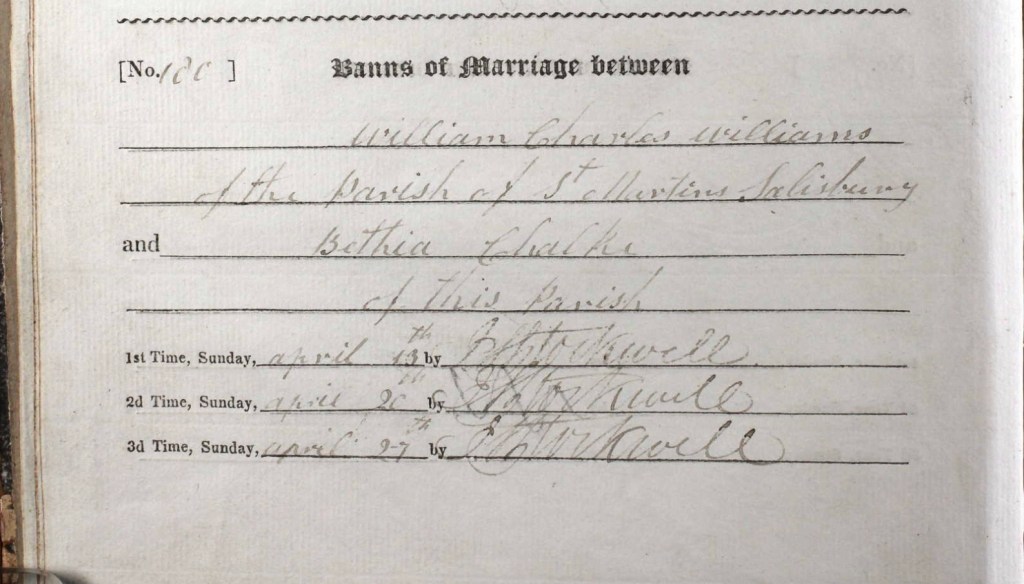 [No. 180 ] Banns of Marriage between
William Charles Williams
of the Parish of St Martins Salisbury
and Bethia Chalke
of this Parish
1st Time, Sunday, april 13th by Stockwell
2d Time, Sunday, april 20th by Stockwell
3d Time, Sunday, april 27th by Stockwell